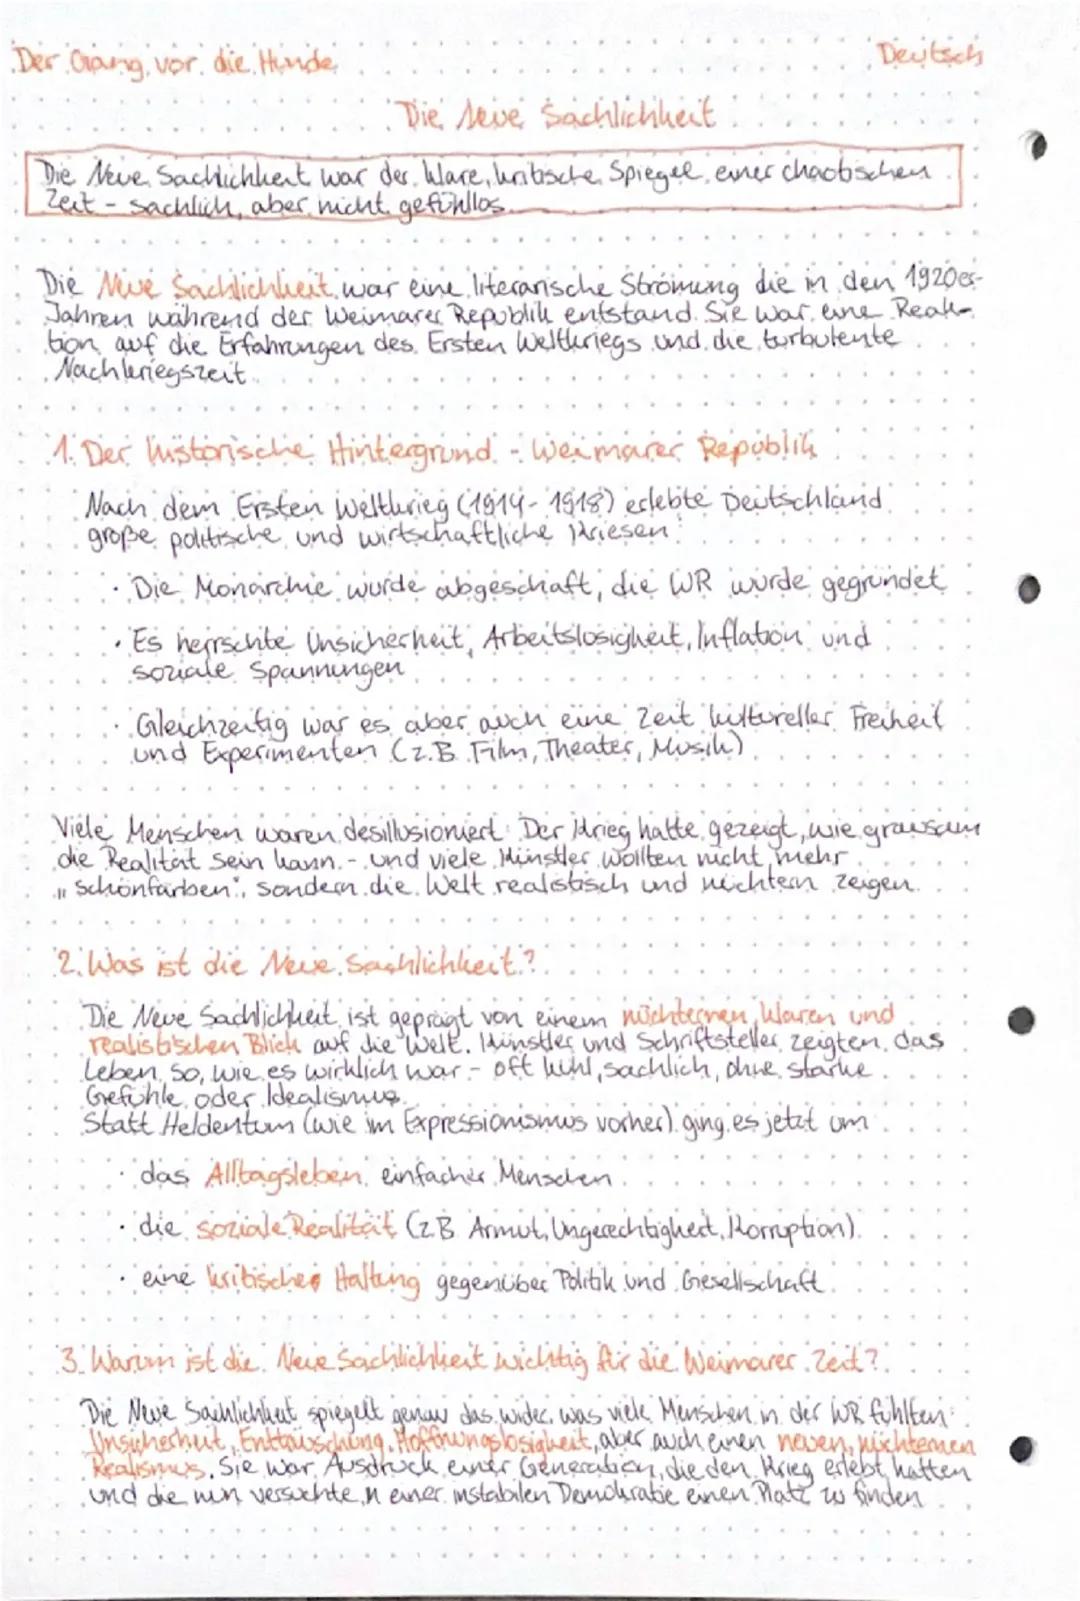 Der Gang vor die Hunde
Deutsch
Die Neue Sachlichkeit
Die Neue Sachlichkeit war der klare, kritische Spiegel einer chaotischen
Zeit - sachlich, aber nicht gefühllos.
Die Neue Sachlichkeit war eine literarische Strömung die in den 1920er-
Jahren während der Weimarer Republik entstand. Sie war eine Reak-
tion auf die Erfahrungen des Ersten Weltkriegs und die turbulente
Nachkriegszeit.
1. Der historische Hintergrund - Weimarer Republik
Nach dem Ersten Weltkrieg (1914-1918) erlebte Deutschland
große politische und wirtschaftliche Kriesen:
· Die Monarchie wurde abgeschaft, die WR wurde gegründet
· Es herrschte Unsicherheit, Arbeitslosigkeit, Inflation und
soziale Spannungen
· Gleichzeitig war es aber auch eine Zeit kultureller Freiheit
und Experimenten (z.B. Film, Theater, Musik)
Viele Menschen waren desillusioniert. Der Krieg hatte gezeigt, wie grausam
die Realität sein kann - und viele Künstler wollten nicht mehr
„schönfärben“, sondern die Welt realistisch und nüchtern zeigen.
2. Was ist die Neue Sachlichkeit?
Die Neue Sachlichkeit ist geprägt von einem nüchternen, klaren und
realistischen Blick auf die Welt. Künstler und Schriftsteller zeigten das
Leben, so, wie es wirklich war - oft kühl, sachlich, ohne starke
Gefühle oder Idealismus.
Statt Heldentum (wie im Expressionismus vorher) ging es jetzt um
· das Alltagsleben einfacher Menschen
· die soziale Realität (z.B. Armut, Ungerechtigkeit, Korruption)
· eine kritische Haltung gegenüber Politik und Gesellschaft
3. Warum ist die Neue Sachlichkeit wichtig für die Weimarer Zeit?
Die Neue Sachlichkeit spiegelt genau das wider, was viele Menschen in der WR fühlten:
Unsicherheit, Enttäuschung, Hoffnungslosigkeit, aber auch einen neuen, nüchternen
Realismus. Sie war Ausdruck einer Generation, die den Krieg erlebt hatten
und die nun versuchte, in einer instabilen Demokratie einen Platz zu finden